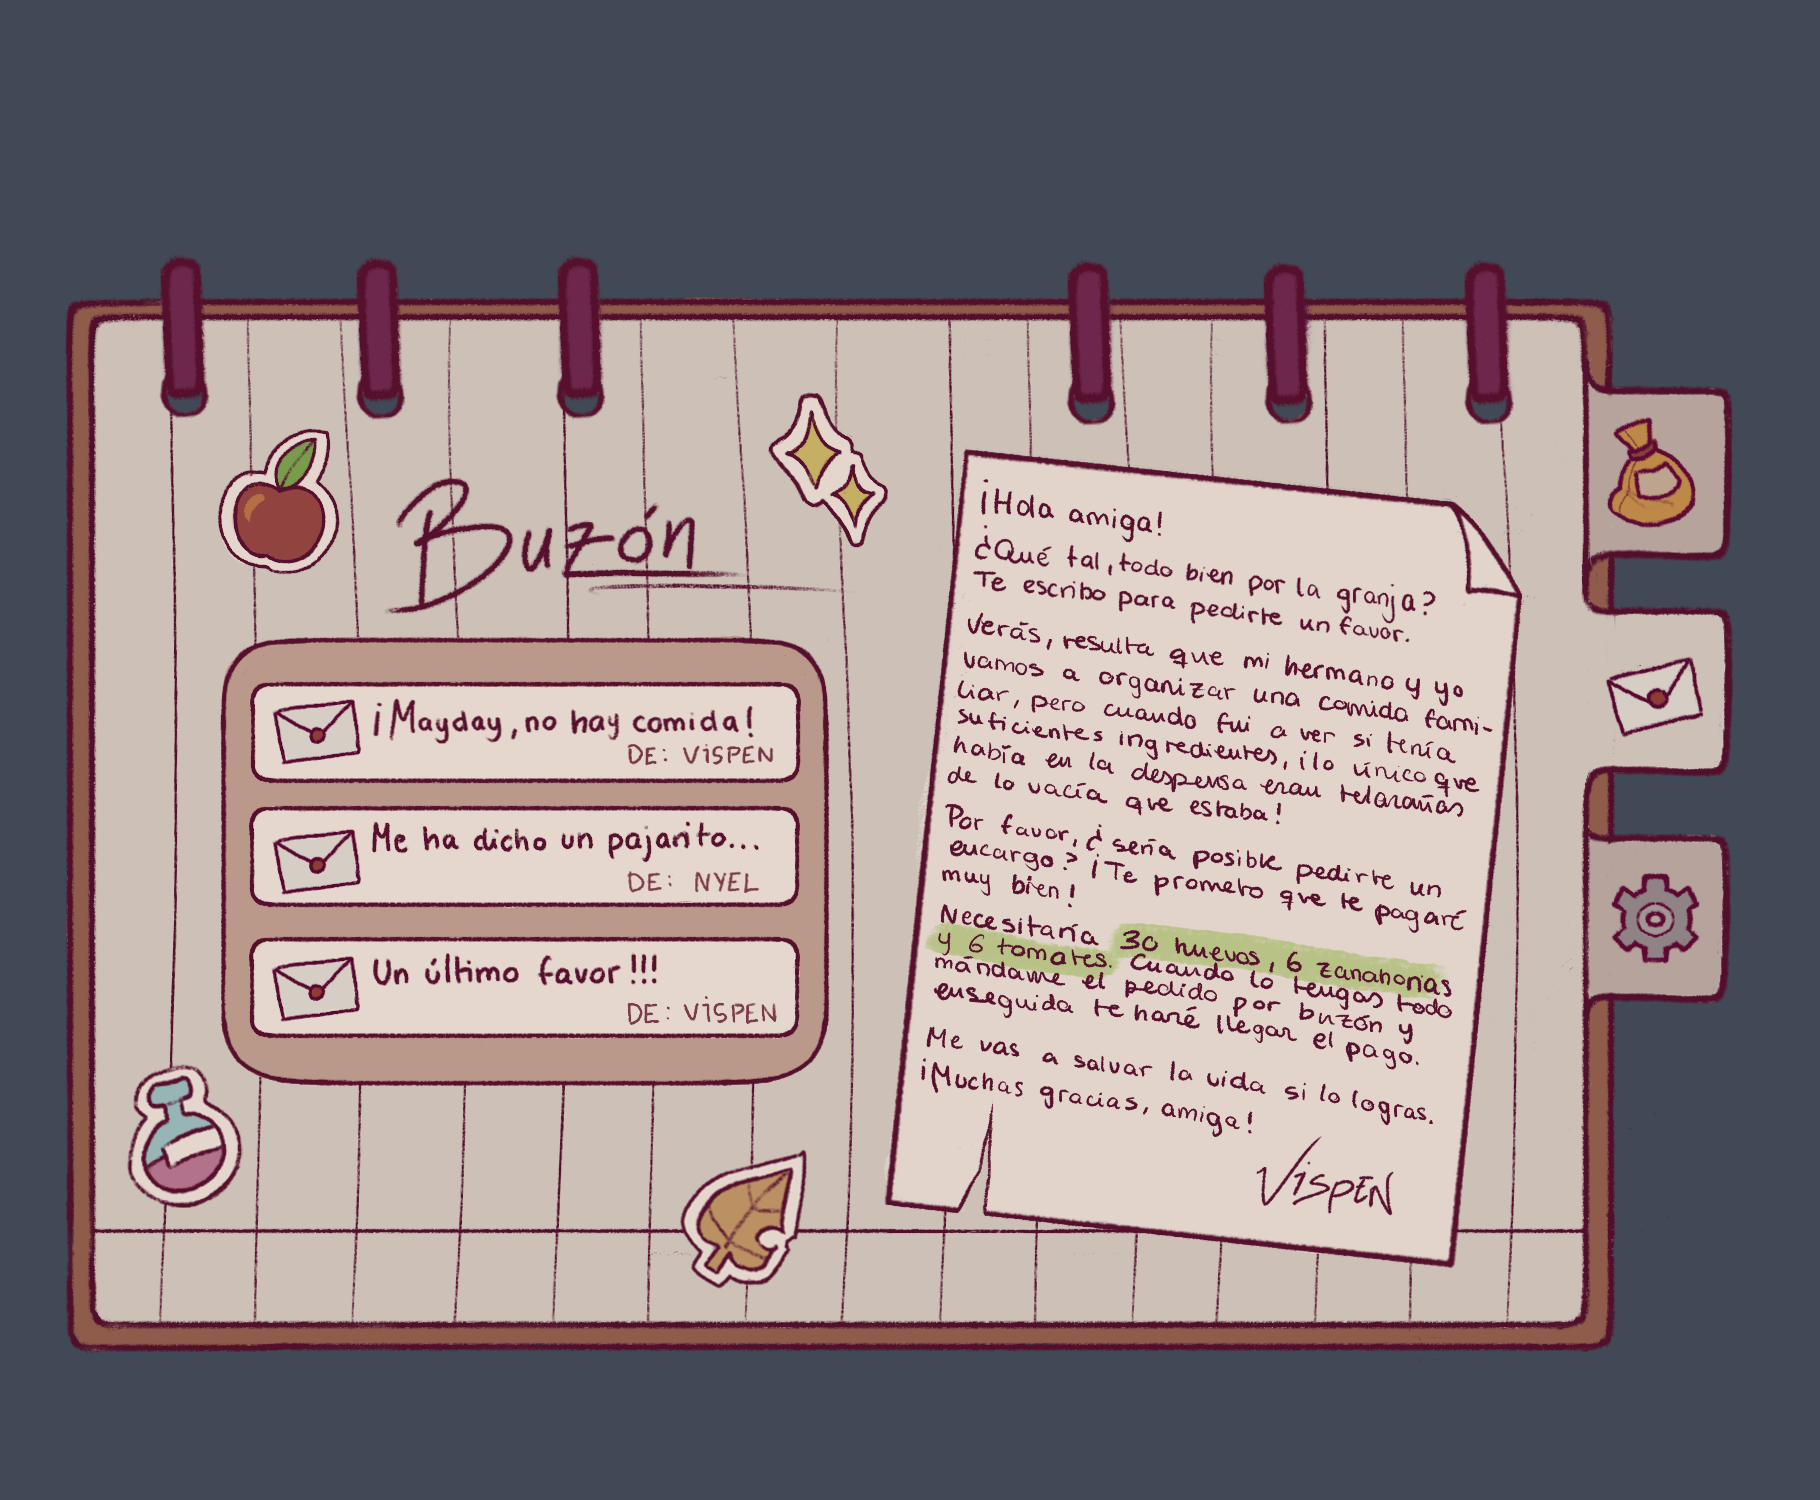 Buzón
¡Mayday, no hay comida!
DE: VISPEN
Me ha dicho un pajarito...
DE: NYEL
Un último favor!!!
DE: VISPEN
¡Hola amiga!
¿Qué tal, todo bien por la granja?
Te escribo para pedirte un favor.
Verás, resulta que mi hermano y yo
vamos a organizar una comida fami-
liar, pero cuando fui a ver si tenía
suficientes ingredientes, ¡lo único que
había en la despensa eran telarañas
de lo vacía que estaba!
Por favor, ¿sería posible pedirte un
encargo? ¡Te prometo que te pagaré
muy bien!
Necesitaría 30 huevos, 6 zanahorias
y 6 tomates. Cuando lo tengas todo
mándame el pedido por buzón y
enseguida te haré llegar el pago.
Me vas a salvar la vida si lo logras.
¡Muchas gracias, amiga!
VISPEN